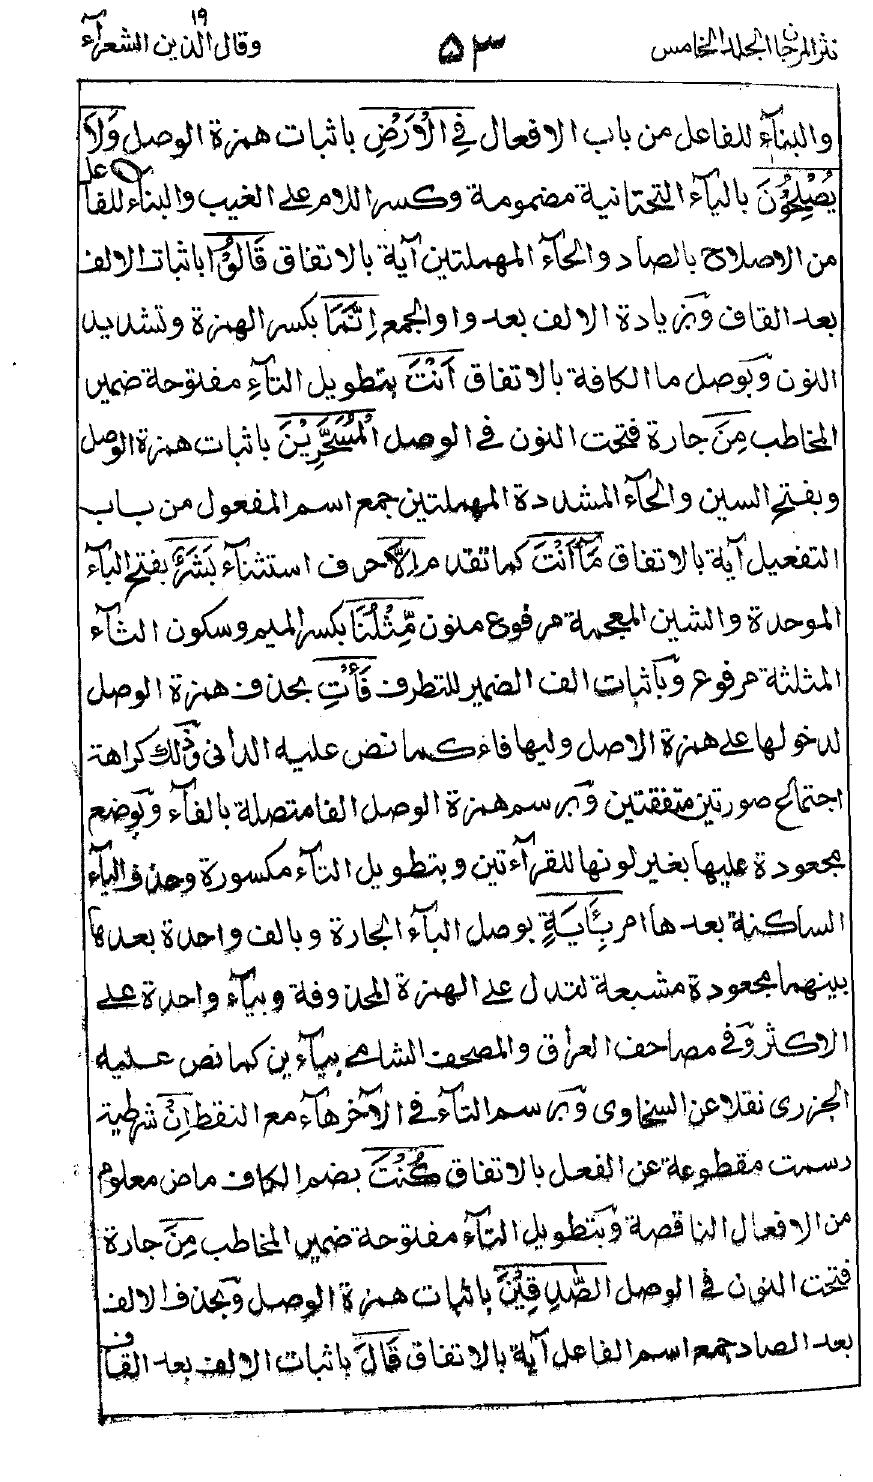 نثر المرجان المجلد الخامس
٥٣
وقال الذين ١٩ الشعرآء
والبنآء للفاعل من باب الافعال فِى الْاَرْضِ باثبات همزة الوصل وَلَا
يُصْلِحُوْنَ باليآء التحتانية مضمومة وكسر اللام على الغيب والبناء للفاعل
من الاصلاح بالصاد والحآء المهملتين آية بالاتفاق قَالُوْٓا باثبات الالف
بعد القاف وَبزيادة الالف بعد واو الجمع اِنَّمَآ بكسر الهمزة وتشديد
النون وَبوصل ما الكافة بالاتفاق اَنْتَ بتطويل التآءِ مفتوحة ضمير
المخاطب مِنَ جارة فتحت النون فى الوصل الْمُسَحَّرِيْنَ باثبات همزة الوصل
وبفتح السين والحآء المشددة المهملتين جمع اسم المفعول من باب
التفعيل آية بالاتفاق مَآ اَنْتَ كما تقدم اِلَّا حرف استثنآء بَشَرٌ بفتح البآء
الموحدة والشين المعجمة مرفوع منون مِّثْلُنَا بكسر الميم وسكون الثآء
المثلثة مرفوع وَباثبات الف الضمير للتطرف فَأْتِ بحذف همزة الوصل
لدخولها على همزة الاصل وليها فاء كما نص عليه الدانى وَذلك كراهة
اجتماع صورتين متفقتين وَبرسم همزة الوصل الفا متصلة بالفآء وَبوضع
مجعودة عليها بغير لونها للقرآءتين وبتطويل التآء مكسورة وحذف اليآء
الساكنة بعدها امر بِـَٔايَةٍ بوصل البآء الجارة وبالف واحدة بعدها
بينهما مجعودة مشبعة لتدل على الهمزة المحذوفة وبيآء واحدة على
الاكثر وَفى مصاحف العراق والمصحف الشامى بيآءين كما نص عليه
الجزرى نقلا عن السخاوى وَبرسم التآء فى الآخر هآء مع النقط اِنْ شرطية
رسمت مقطوعة عن الفعل بالاتفاق كُنْتَ بضم الكاف ماض معلوم
من الافعال الناقصة وَبتطويل التآء مفتوحة ضمير المخاطب مِنَ جارة
فتحت النون فى الوصل الصّٰدِقِيْنَ باثبات همزة الوصل وَبحذف الالف
بعد الصاد جمع اسم الفاعل آية بالاتفاق قَالَ باثبات الالف بعد القاف